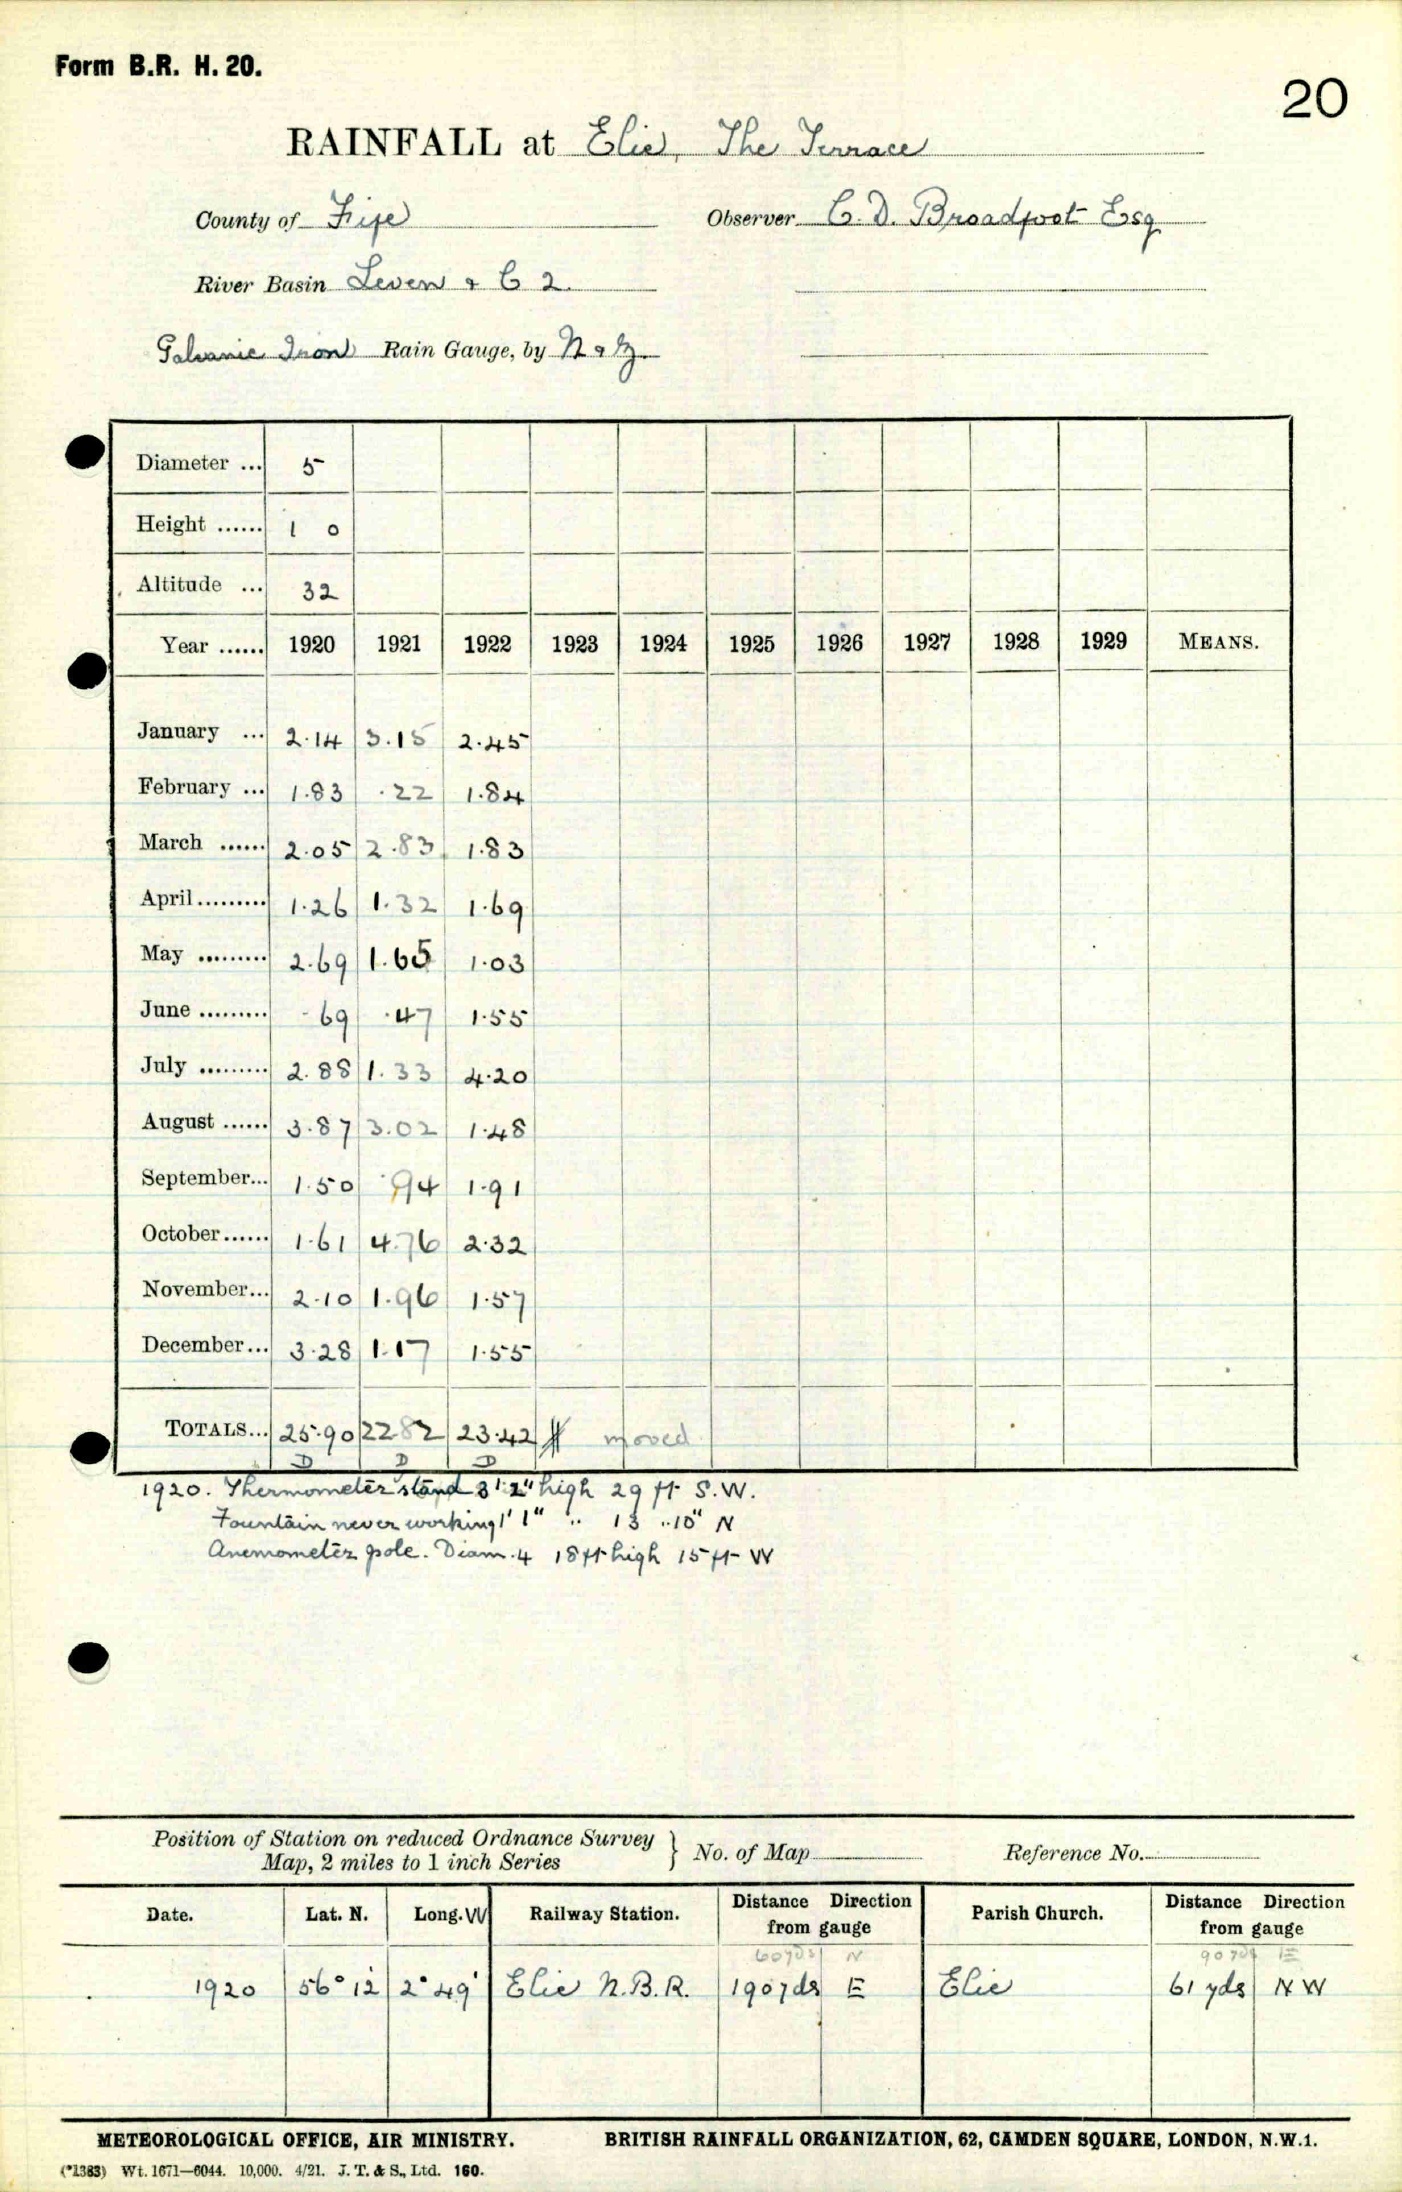 Form B.R. H. 20.
20
RAINFALL at Elie, The Terrace
County of Fife Observer C. D. Broadfoot Esq
River Basin Leven & C 2.
Galvanic Iron Rain Gauge, by N & Z
Diameter ... 5
Height ...... 1 0
Altitude ... 32
Year ...... 1920 1921 1922 1923 1924 1925 1926 1927 1928 1929 MEANS.
January ... 2.14 3.15 2.45
February ... 1.83 .22 1.84
March ...... 2.05 2.83 1.83
April ......... 1.26 1.32 1.69
May ......... 2.69 1.65 1.03
June ......... .69 .47 1.55
July ......... 2.88 1.33 4.20
August ...... 3.87 3.02 1.48
September... 1.50 .94 1.91
October ...... 1.61 4.76 2.32
November... 2.10 1.96 1.57
December... 3.28 1.17 1.55
TOTALS... 25.90 22 82 23.42 moved
D D D
1920. Thermometer stand 3' 2" high 29 ft S.W.
Fountain never working 1' 1" " 13 " 10" N
Anemometer pole. Diam. 4 18 ft high 15 ft W
Position of Station on reduced Ordnance Survey
Map, 2 miles to 1 inch Series } No. of Map Reference No.
Date. Lat. N. Long. W Railway Station. Distance Direction from gauge Parish Church. Distance Direction from gauge
60 yds N 90 yds E
1920 56° 12' 2° 49' Elie N.B.R. 190 yds E Elie 61 yds NW
METEOROLOGICAL OFFICE, AIR MINISTRY. BRITISH RAINFALL ORGANIZATION, 62, CAMDEN SQUARE, LONDON, N.W.1.
(*1383) Wt. 1671—6044. 10,000. 4/21. J. T. & S., Ltd. 160.